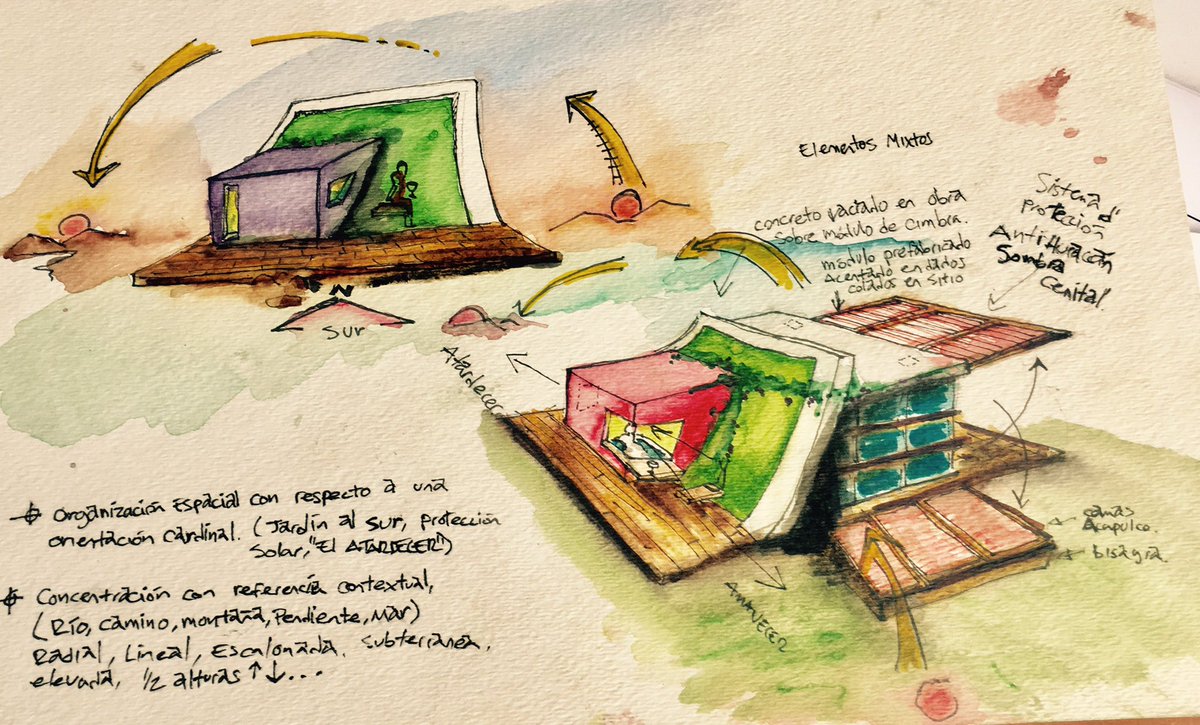 Elementos Mixtos
concreto vaciado en obra
sobre módulo de cimbra.
módulo prefabricado
Acentado en dados
colados en sitio
Sistema d'
protección
AntiHuracán
Sombra
Cenital.
N
Sur
Atardecer
Amanecer
camas
Acapulco.
bisagra
Organización Espacial con respecto a una
orientación cardinal. (Jardín al sur, protección
Solar, "El ATARDECER")
Concentración con referencia contextual,
(Río, camino, montaña, Pendiente, Mar)
Radial, Lineal, Escalonada, subterranea,
elevada, 1/2 alturas ↑ ↓...